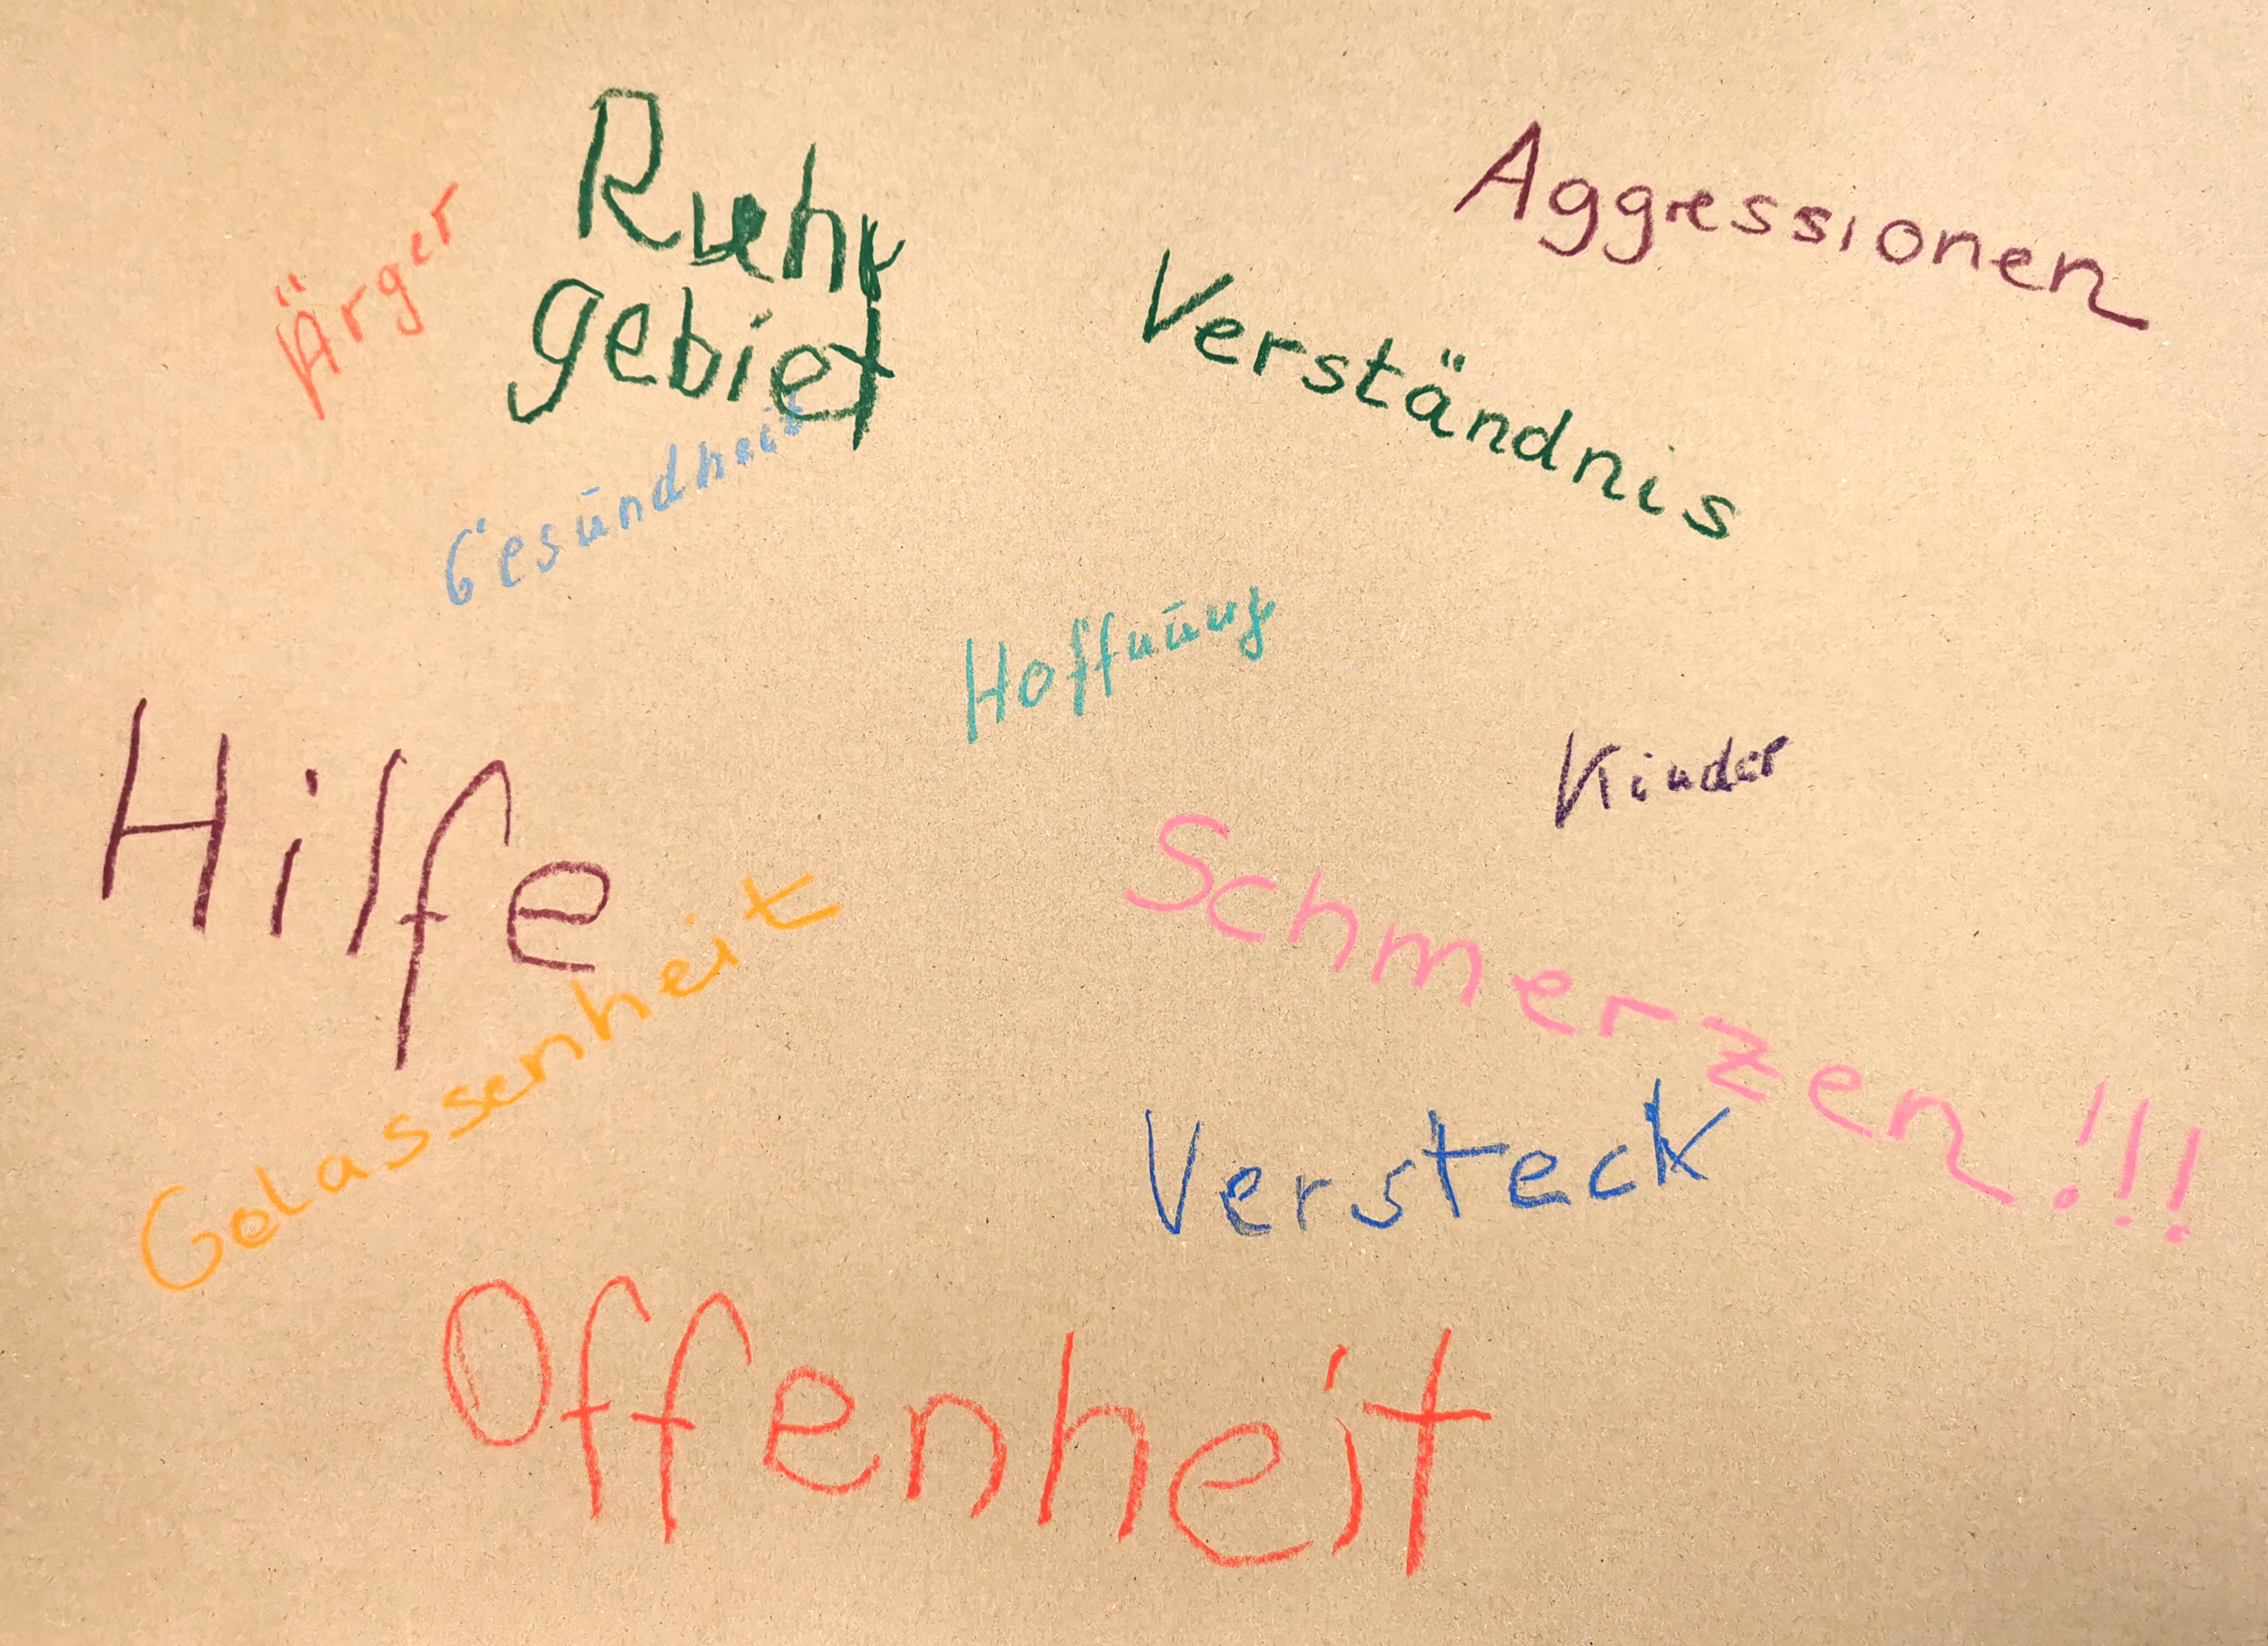 Ärger
Ruhr
gebiet
Aggressionen
Verständnis
Gesundheit
Hoffnung
Hilfe
Kinder
Schmerzen!!!
Gelassenheit
Versteck
Offenheit